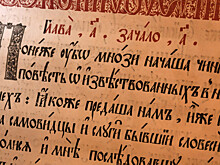 Глава̀, а҃. Зача́ло, а҃.
Поне́же ᲂу҆́бѡ мно́зи нача́ша чини́
по́вѣсть ѡ҆ и҆звѣ́ствованныхъ в н
ехъ: ꙗ҆́коже преда́ша на́мъ, и҆̀же и҆
самови́дцы и҆ слꙋги̑ бы́вшїи сло
олисѧ и҆ мнѣ̀ послѣ́довавш